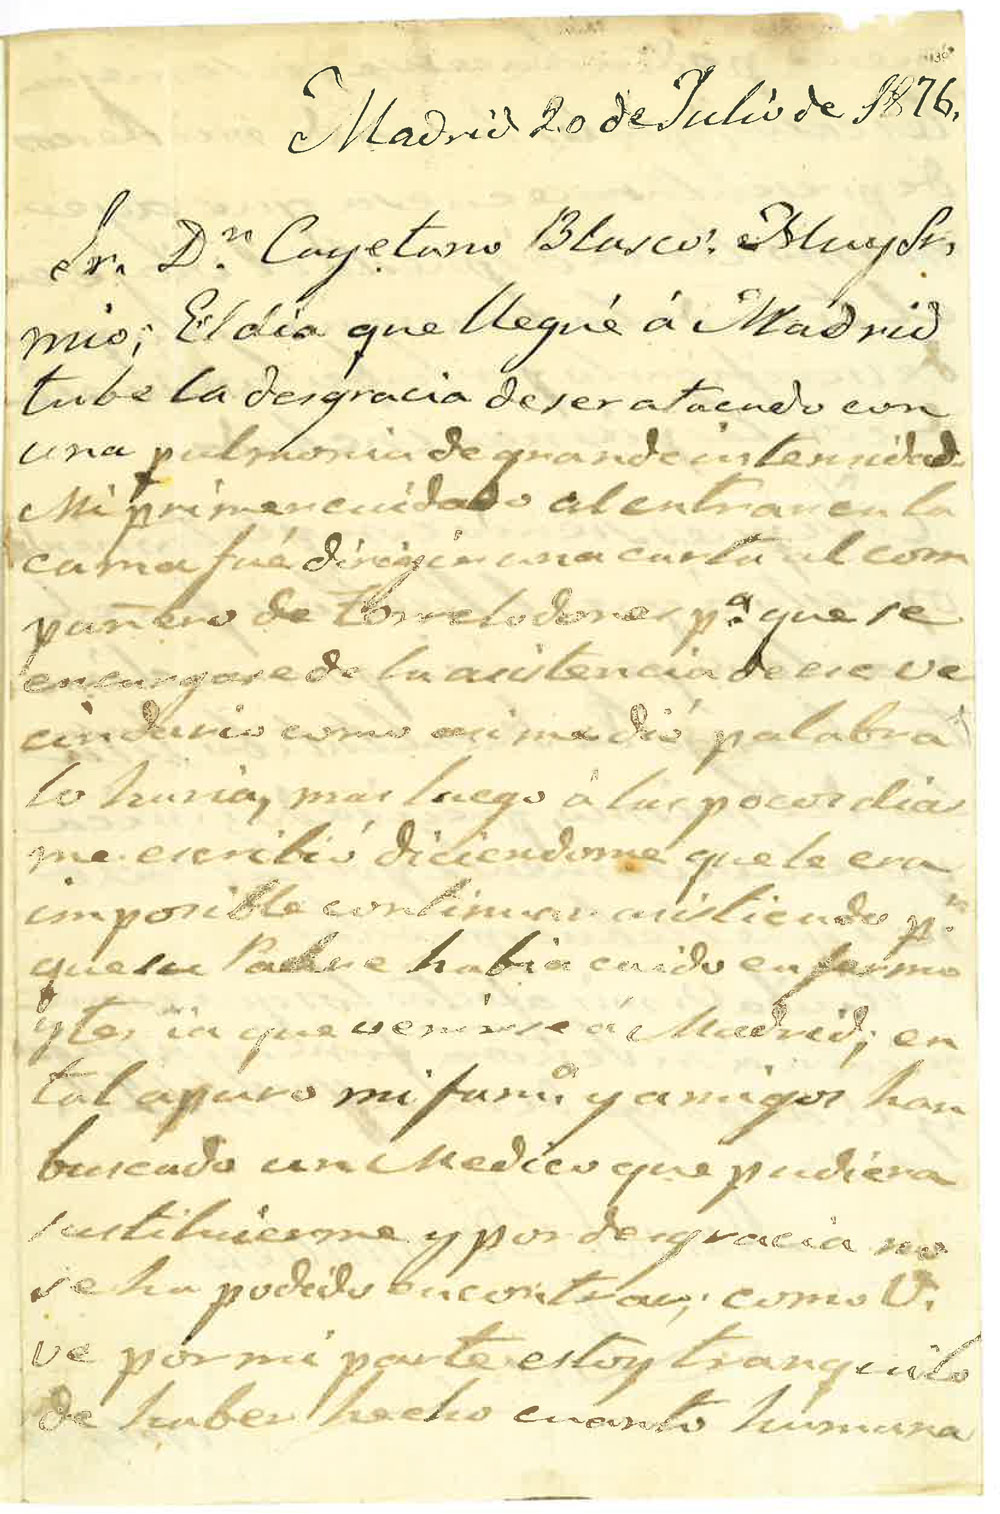 Madrid 20 de Julio de 1876.
Sr. Dn. Cayetano Blasco: Muy Sr.
mio; El dia que llegué á Madrid
tube la desgracia de ser atacado con
una pulmonia de grande intensidad.
Mi primer cuidado al entrar en la
cama fué dirigir una carta al com
pañero de Torrelodones pa. que se
encargase de la asistencia de ese ve
cindario como asi me dió palabra
lo haria, mas luego á los pocos dias
me escribió diciendome que le era
imposible continuar asistiendo pr.
que su Padre habia caido enfermo
y tenia que venirse á Madrid; en
tal apuro mi fama. y amigos han
buscado un Medico que pudiera
sustituirme y por desgracia no
se ha podido encontrar; como V.
ve por mi parte estoy tranquilo
de haber hecho cuanto humana